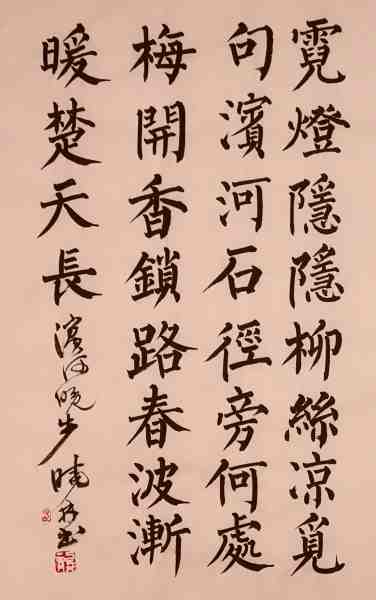 霓燈隱隱柳絲凉覓
句濱河石徑旁何處
梅開香鎖路春波漸
暖楚天長
濱河晚步 曉舟書